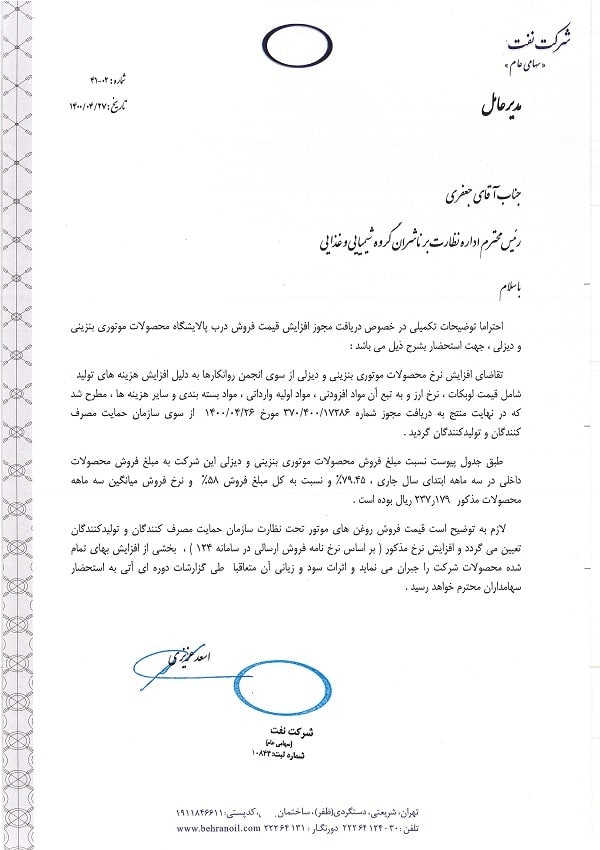 شرکت نفت
«سهامی عام»
شماره: ۰۲-۴۱
تاریخ: ۱۴۰۰/۰۴/۲۷
مدیرعامل
جناب آقای جعفری
رئیس محترم اداره نظارت بر ناشران گروه شیمیایی و غذایی
باسلام
احتراما توضیحات تکمیلی در خصوص دریافت مجوز افزایش قیمت فروش درب پالایشگاه محصولات موتوری بنزینی
و دیزلی ، جهت استحضار بشرح ذیل می باشد :
تقاضای افزایش نرخ محصولات موتوری بنزینی و دیزلی از سوی انجمن روانکارها به دلیل افزایش هزینه های تولید
شامل قیمت لوبکات ، نرخ ارز و به تبع آن مواد افزودنی ، مواد اولیه وارداتی ، مواد بسته بندی و سایر هزینه ها ، مطرح شد
که در نهایت منتج به دریافت مجوز شماره ۳۷۰/۴۰۰/۱۷۲۸۶ مورخ ۱۴۰۰/۰۴/۲۶ از سوی سازمان حمایت مصرف
کنندگان و تولیدکنندگان گردید .
طبق جدول پیوست نسبت مبلغ فروش محصولات موتوری بنزینی و دیزلی این شرکت به مبلغ فروش محصولات
داخلی در سه ماهه ابتدای سال جاری ، ۷۹.۴۵٪ و نسبت به کل مبلغ فروش ۵۸٪ و نرخ فروش میانگین سه ماهه
محصولات مذکور ۲۳۷٫۱۷۹ ریال بوده است .
لازم به توضیح است قیمت فروش روغن های موتور تحت نظارت سازمان حمایت مصرف کنندگان و تولیدکنندگان
تعیین می گردد و افزایش نرخ مذکور ( بر اساس نرخ نامه فروش ارسالی در سامانه ۱۲۴ ) ، بخشی از افزایش بهای تمام
شده محصولات شرکت را جبران می نماید و اثرات سود و زیانی آن متعاقبا طی گزارشات دوره ای آتی به استحضار
سهامداران محترم خواهد رسید .
شرکت نفت
(سهامی عام)
شماره ثبت: ۱۰۸۳۳
تهران، شریعتی، دستگردی(ظفر)، ساختمان ، کدپستی: ۱۹۱۱۸۴۶۶۱۱
تلفن: ۳۰-۲۲۲۶۴۱۲۴ دورنگار: ۲۲۲۶۴۱۳۱ www.behranoil.com